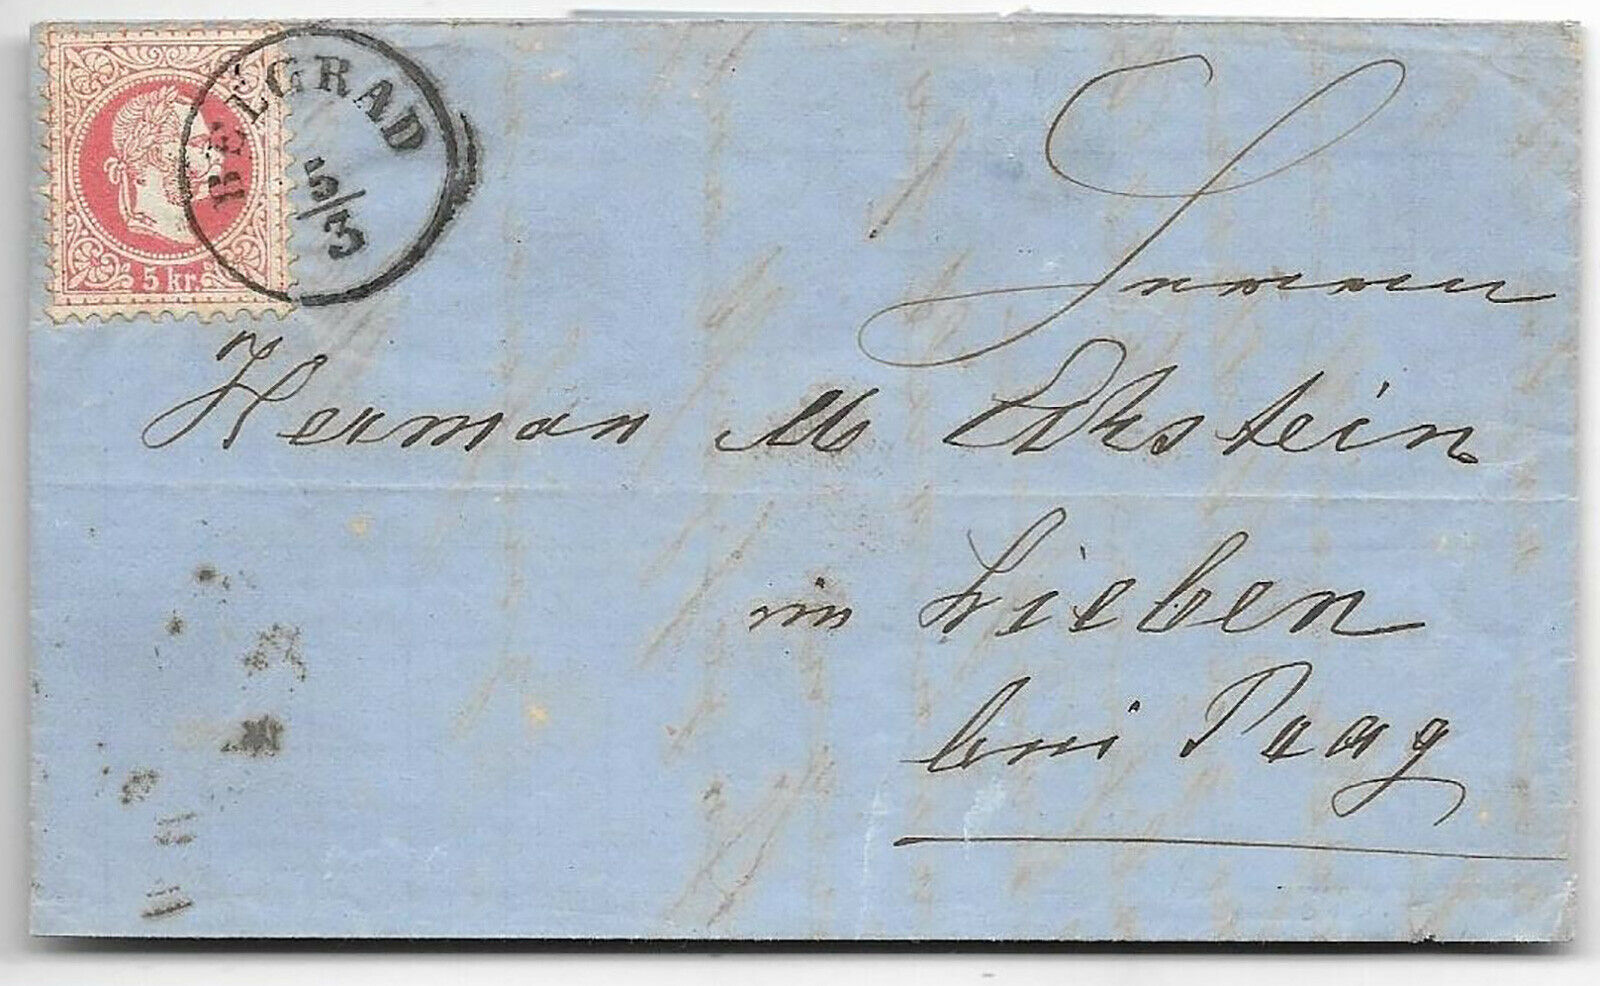 BELGRAD
5/3
5 kr.
Herrn
Herman M Ekstein
in Lieben
bei Prag